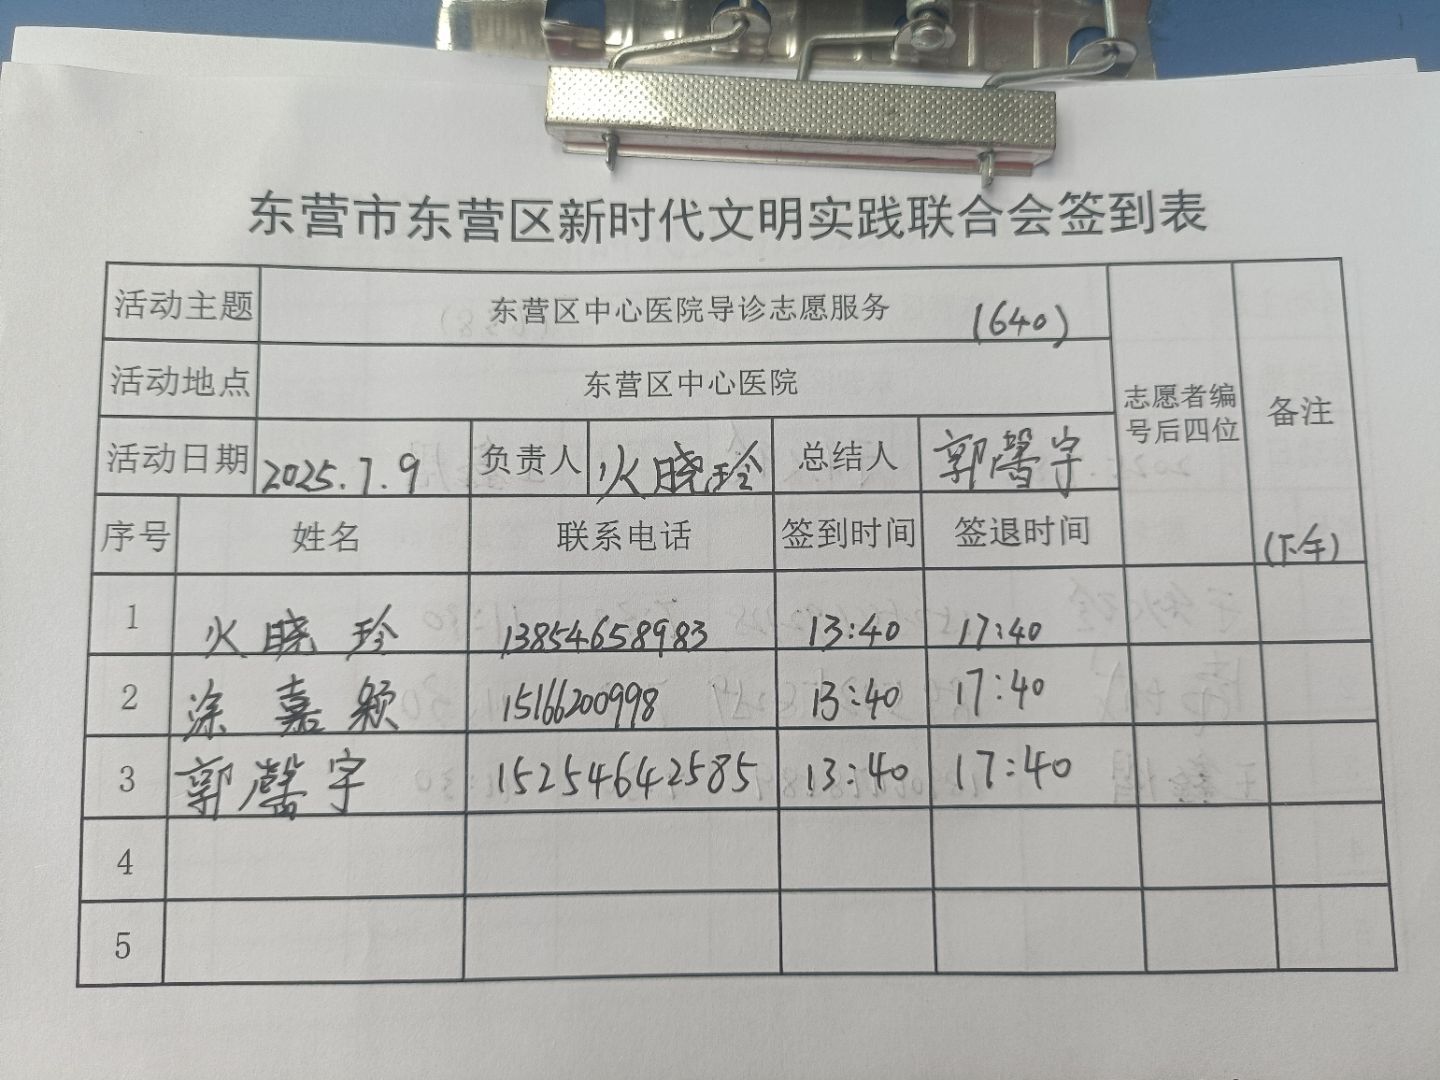 东营市东营区新时代文明实践联合会签到表
活动主题 东营区中心医院导诊志愿服务 (640)
活动地点 东营区中心医院
志愿者编号后四位 备注
活动日期 2025.7.9 负责人 火晓玲 总结人 郭馨宇
序号 姓名 联系电话 签到时间 签退时间 (下午)
1 火晓玲 13854658983 13:40 17:40
2 涂嘉颖 15166200998 13:40 17:40
3 郭馨宇 15254642585 13:40 17:40
4
5